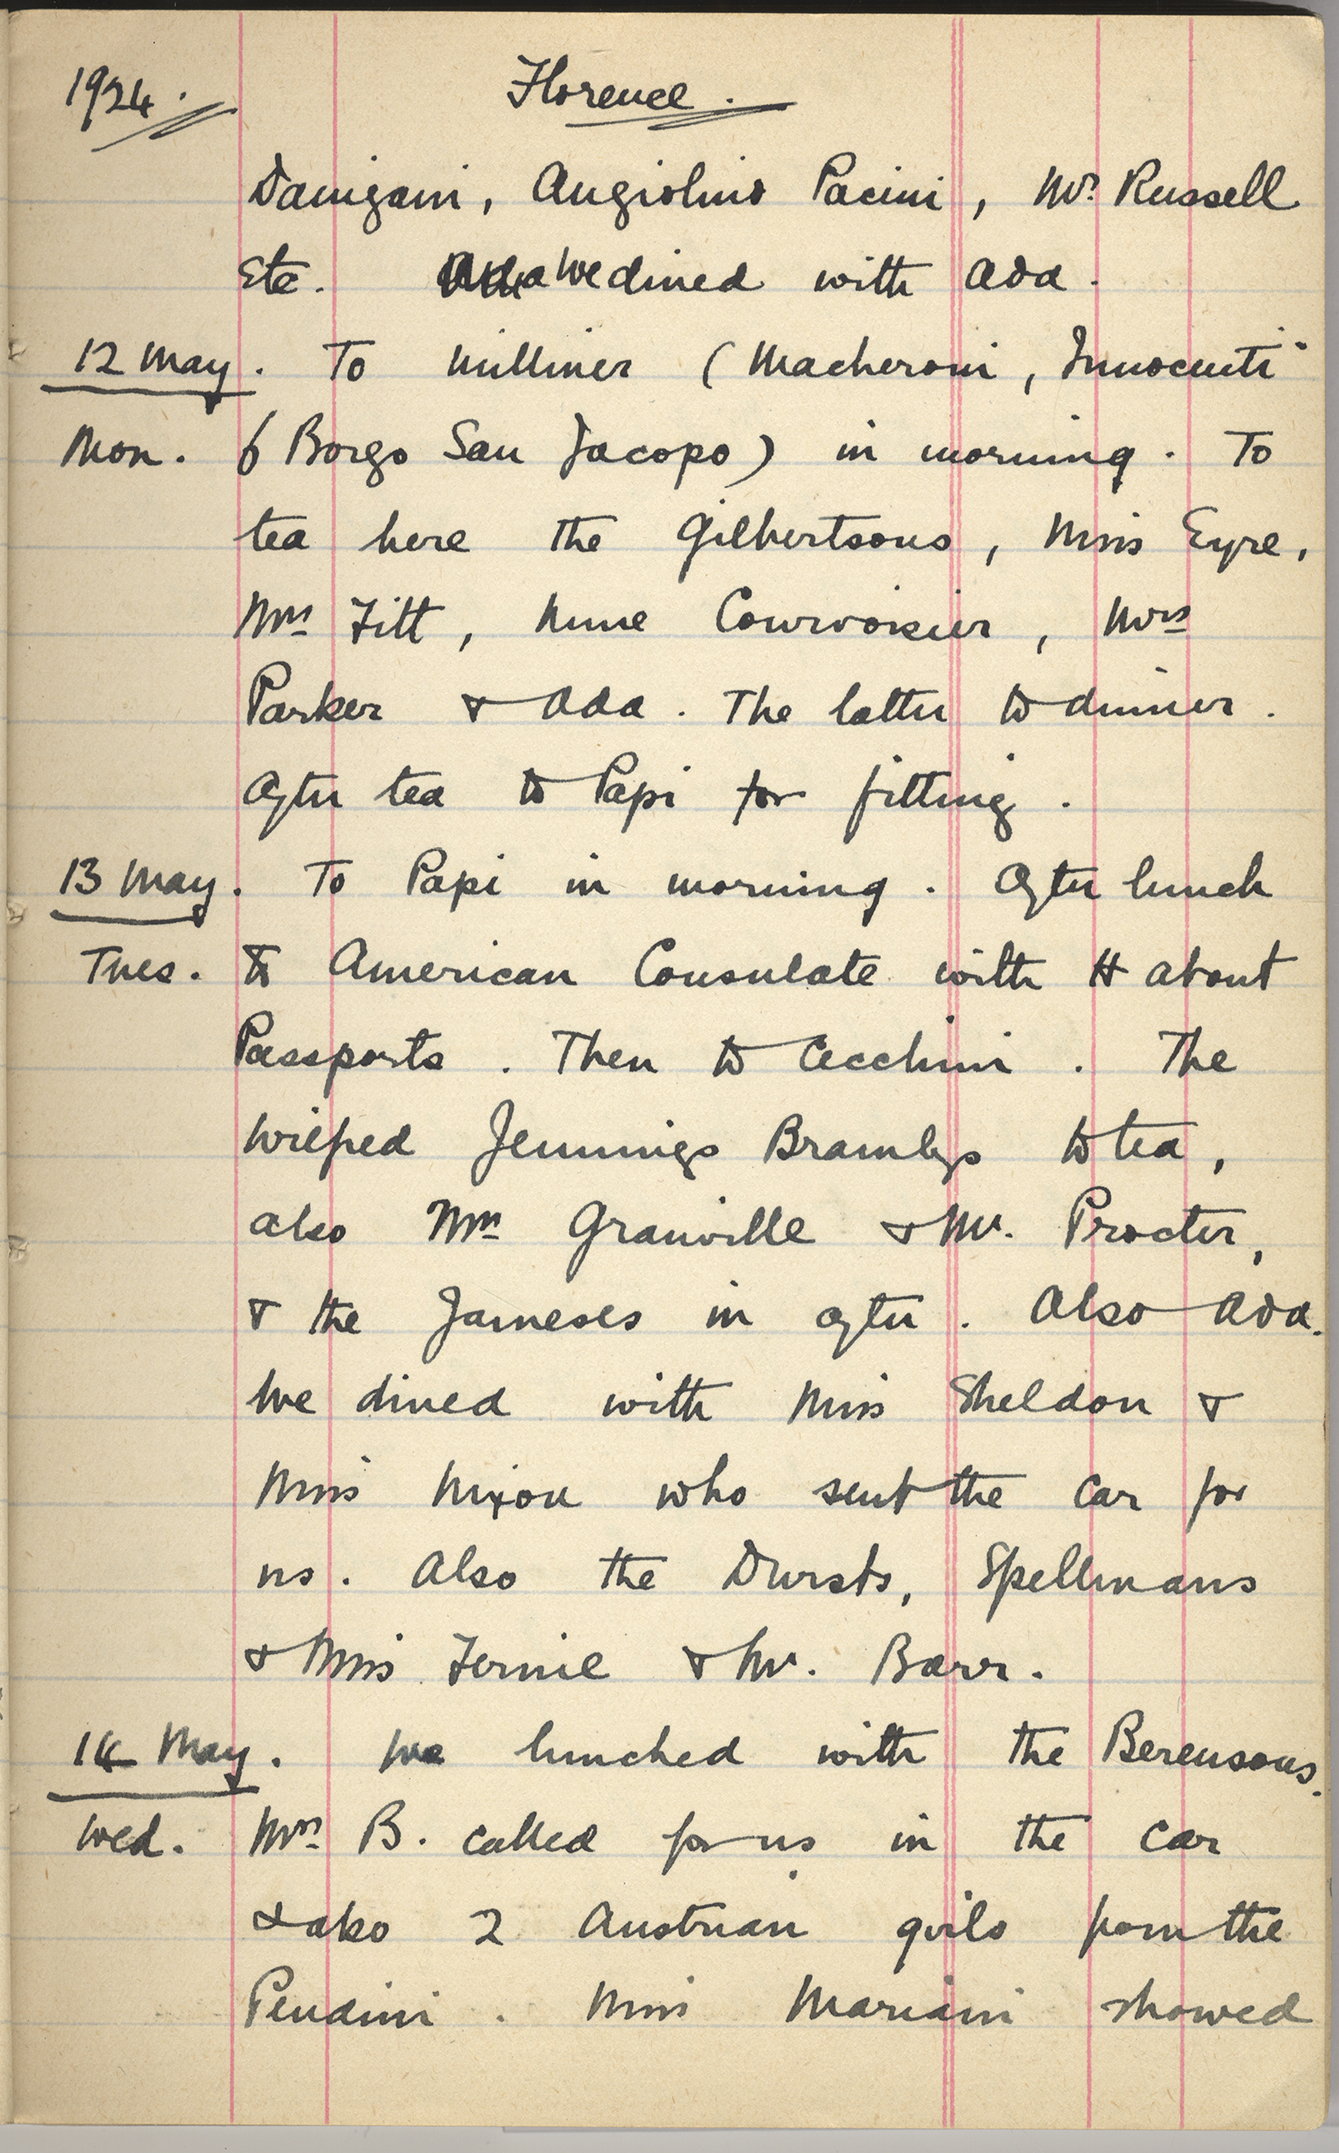 1924. Florence.
Danigani, Angiolino Pacini, Mr. Russell
Etc. We dined with Ada.
12 May. To milliner (Macheroni, Innocenti
Mon. 6 Borgo San Jacopo) in morning. To
tea here the Gilbertsons, Miss Eyre,
Mrs Fitt, Mme Courvoisier, Mrs
Parker & Ada. The latter to dinner.
After tea to Papi for fitting.
13 May. To Papi in morning. After lunch
Tues. to American Consulate with H about
Passports. Then to Cecchini. The
Wilfred Jennings Bramlys to tea,
also Mrs Granville & Mr. Procter,
& the Jameses in after. Also Ada.
We dined with Miss Sheldon &
Miss Nixon who sent the car for
us. Also the Dursts, Spellmans
& Miss Fernie & Mr. Barr.
14 May. We lunched with the Berensons.
Wed. Mrs B. called for us in the car
& also 2 Austrian girls from the
Pendini. Miss Mariani showed